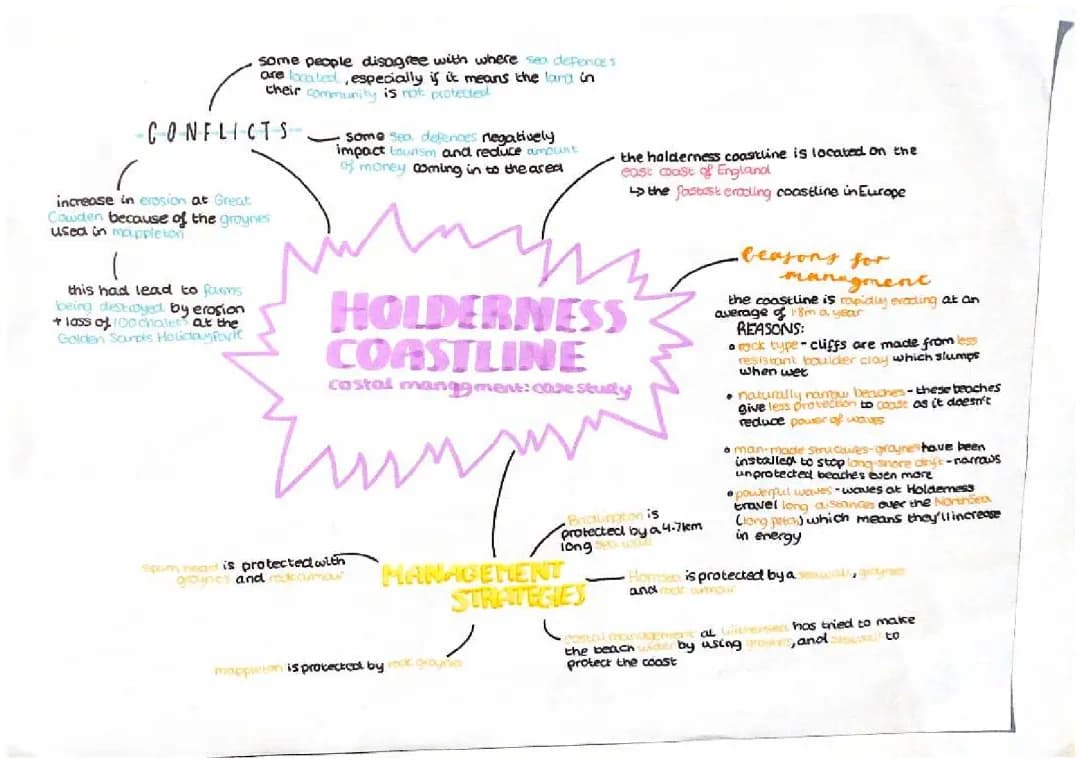 some people disagree with where sea defences
are located, especially if it means the land in
their community is not protected
CONFLICTS
some sea defences negatively
impact tourism and reduce amount
of money coming in to the area
increase in erosion at Great
Cowden because of the groynes
used in mappleton
this had lead to farms
being destroyed by erosion
+ loss of 100 chalets at the
Golden Sands Holiday Park
the holderness coastline is located on the
east coast of England
↳ the fastest eroding coastline in Europe
HOLDERNESS
COASTLINE
costal mangment: case study
reasons for
managment
the coastline is rapidly eroding at an
average of 1.8m a year
REASONS:
• rock type - cliffs are made from less
resistant boulder clay which slumps
when wet
• naturally narrow beaches - these beaches
give less protection to coast as it doesn't
reduce power of waves
• man-made structures - groynes have been
installed to stop long-shore drift - narrows
unprotected beaches even more
• powerful waves - waves at Holderness
travel long distances over the North Sea
(long fetch) which means they'll increase
in energy
MANAGEMENT
STRATEGIES
Bridlington is
protected by a 4.7km
long sea wall
Hornsea is protected by a sea wall, groynes
and rock armour
costal management at Withernsea has tried to make
the beach wider by using groynes, and seawall to
protect the coast
mappleton is protected by rock groynes
spurn head is protected with
groynes and rock armour